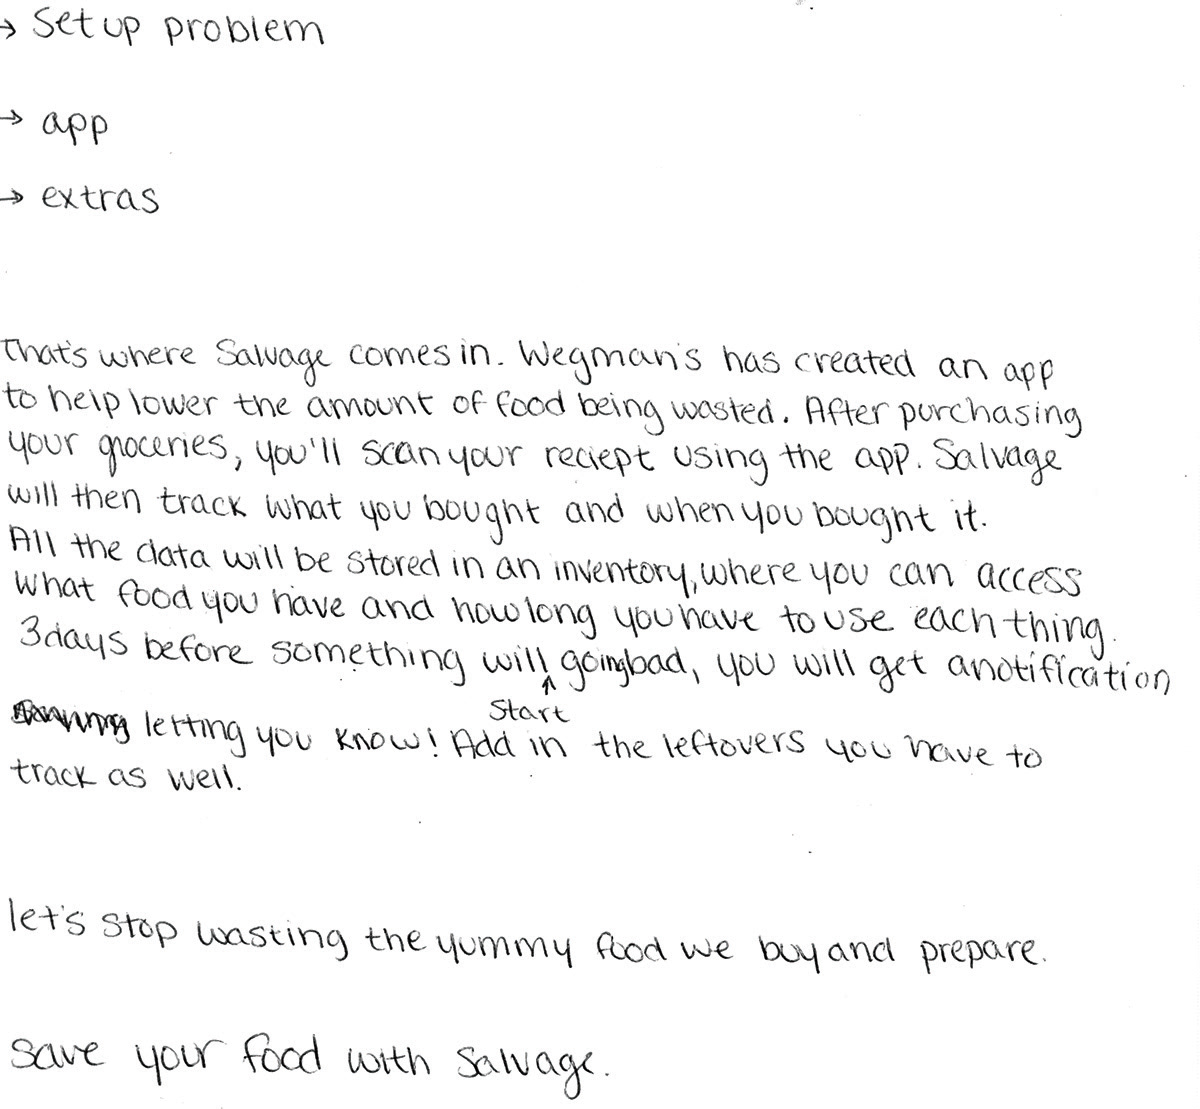 → Setup problem
→ app
→ extras
That's where Salvage comes in. Wegman's has created an app
to help lower the amount of food being wasted. After purchasing
your groceries, you'll scan your reciept using the app. Salvage
will then track what you bought and when you bought it.
All the data will be stored in an inventory, where you can access
what food you have and how long you have to use each thing.
3 days before something will going bad, you will get a notification
^
start
letting you know! Add in the leftovers you have to
track as well.
let's stop wasting the yummy food we buy and prepare.
Save your food with Salvage.